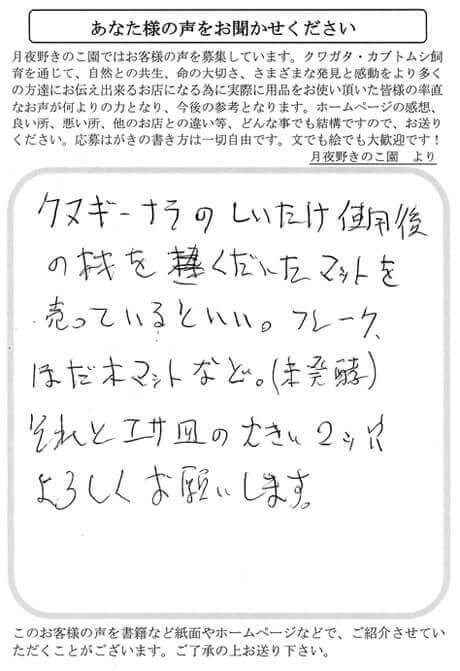 あなた様の声をお聞かせください
月夜野きのこ園ではお客様の声を募集しています。クワガタ・カブトムシ飼
育を通じて、自然との共生、命の大切さ、さまざまな発見と感動をより多く
の方達にお伝え出来るお店になる為に実際に用品をお使い頂いた皆様の率直
なお声が何よりの力となり、今後の参考となります。ホームページの感想、
良い所、悪い所、他のお店との違い等、どんな事でも結構ですので、お送り
ください。応募はがきの書き方は一切自由です。文でも絵でも大歓迎です！
月夜野きのこ園　より
クヌギーナラのしいたけ使用後
の材をくだいたマットを
売っているといい。フレーク、
ほだ木マットなど。(未発酵)
それとエサ皿の大きい
よろしくお願いします。
このお客様の声を書籍など紙面やホームページなどで、ご紹介させてい
ただくことがございます。ご了承の上お送り下さい。